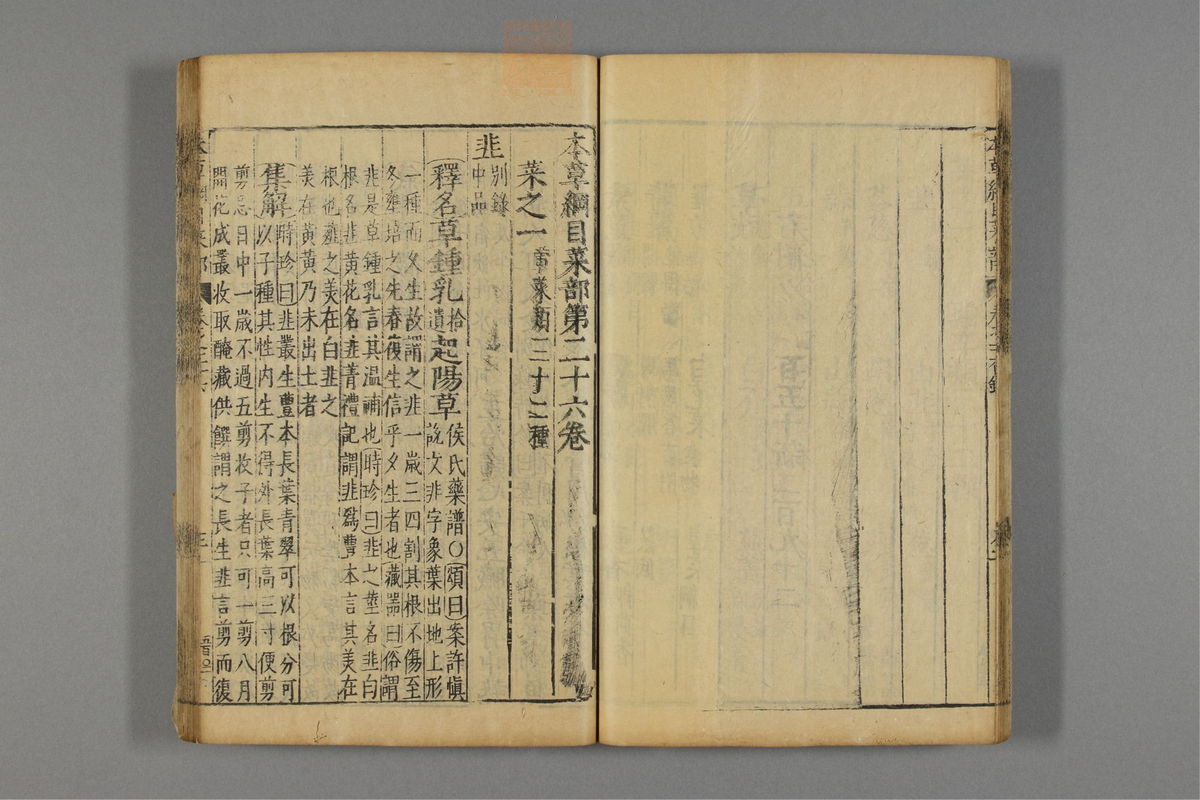 本草綱目菜部第二十六卷
菜之一葷菜類三十二種
韭
別錄
中品
釋名草鍾乳拾遺起陽草侯氏藥譜○頌曰案許愼
說文韭字象葉出地上形
一種而久生故謂之韭一歲三四割其根不傷至
冬壅培之先春復生信乎久生者也藏器曰俗謂
韭是草鍾乳言其溫補也時珍曰韭之莖名韭白
根名韭黃花名韭菁禮記謂韭爲豊本言其美在
根也薤之美在白韭之
美在黃黃乃未出土者
集解時珍曰韭叢生豊本長葉青翠可以根分可
以子種其性內生不得外長葉高三寸便剪
剪忌日中一歲不過五剪收子者只可一剪八月
開花成叢收取醃藏供饌謂之長生韭言剪而復